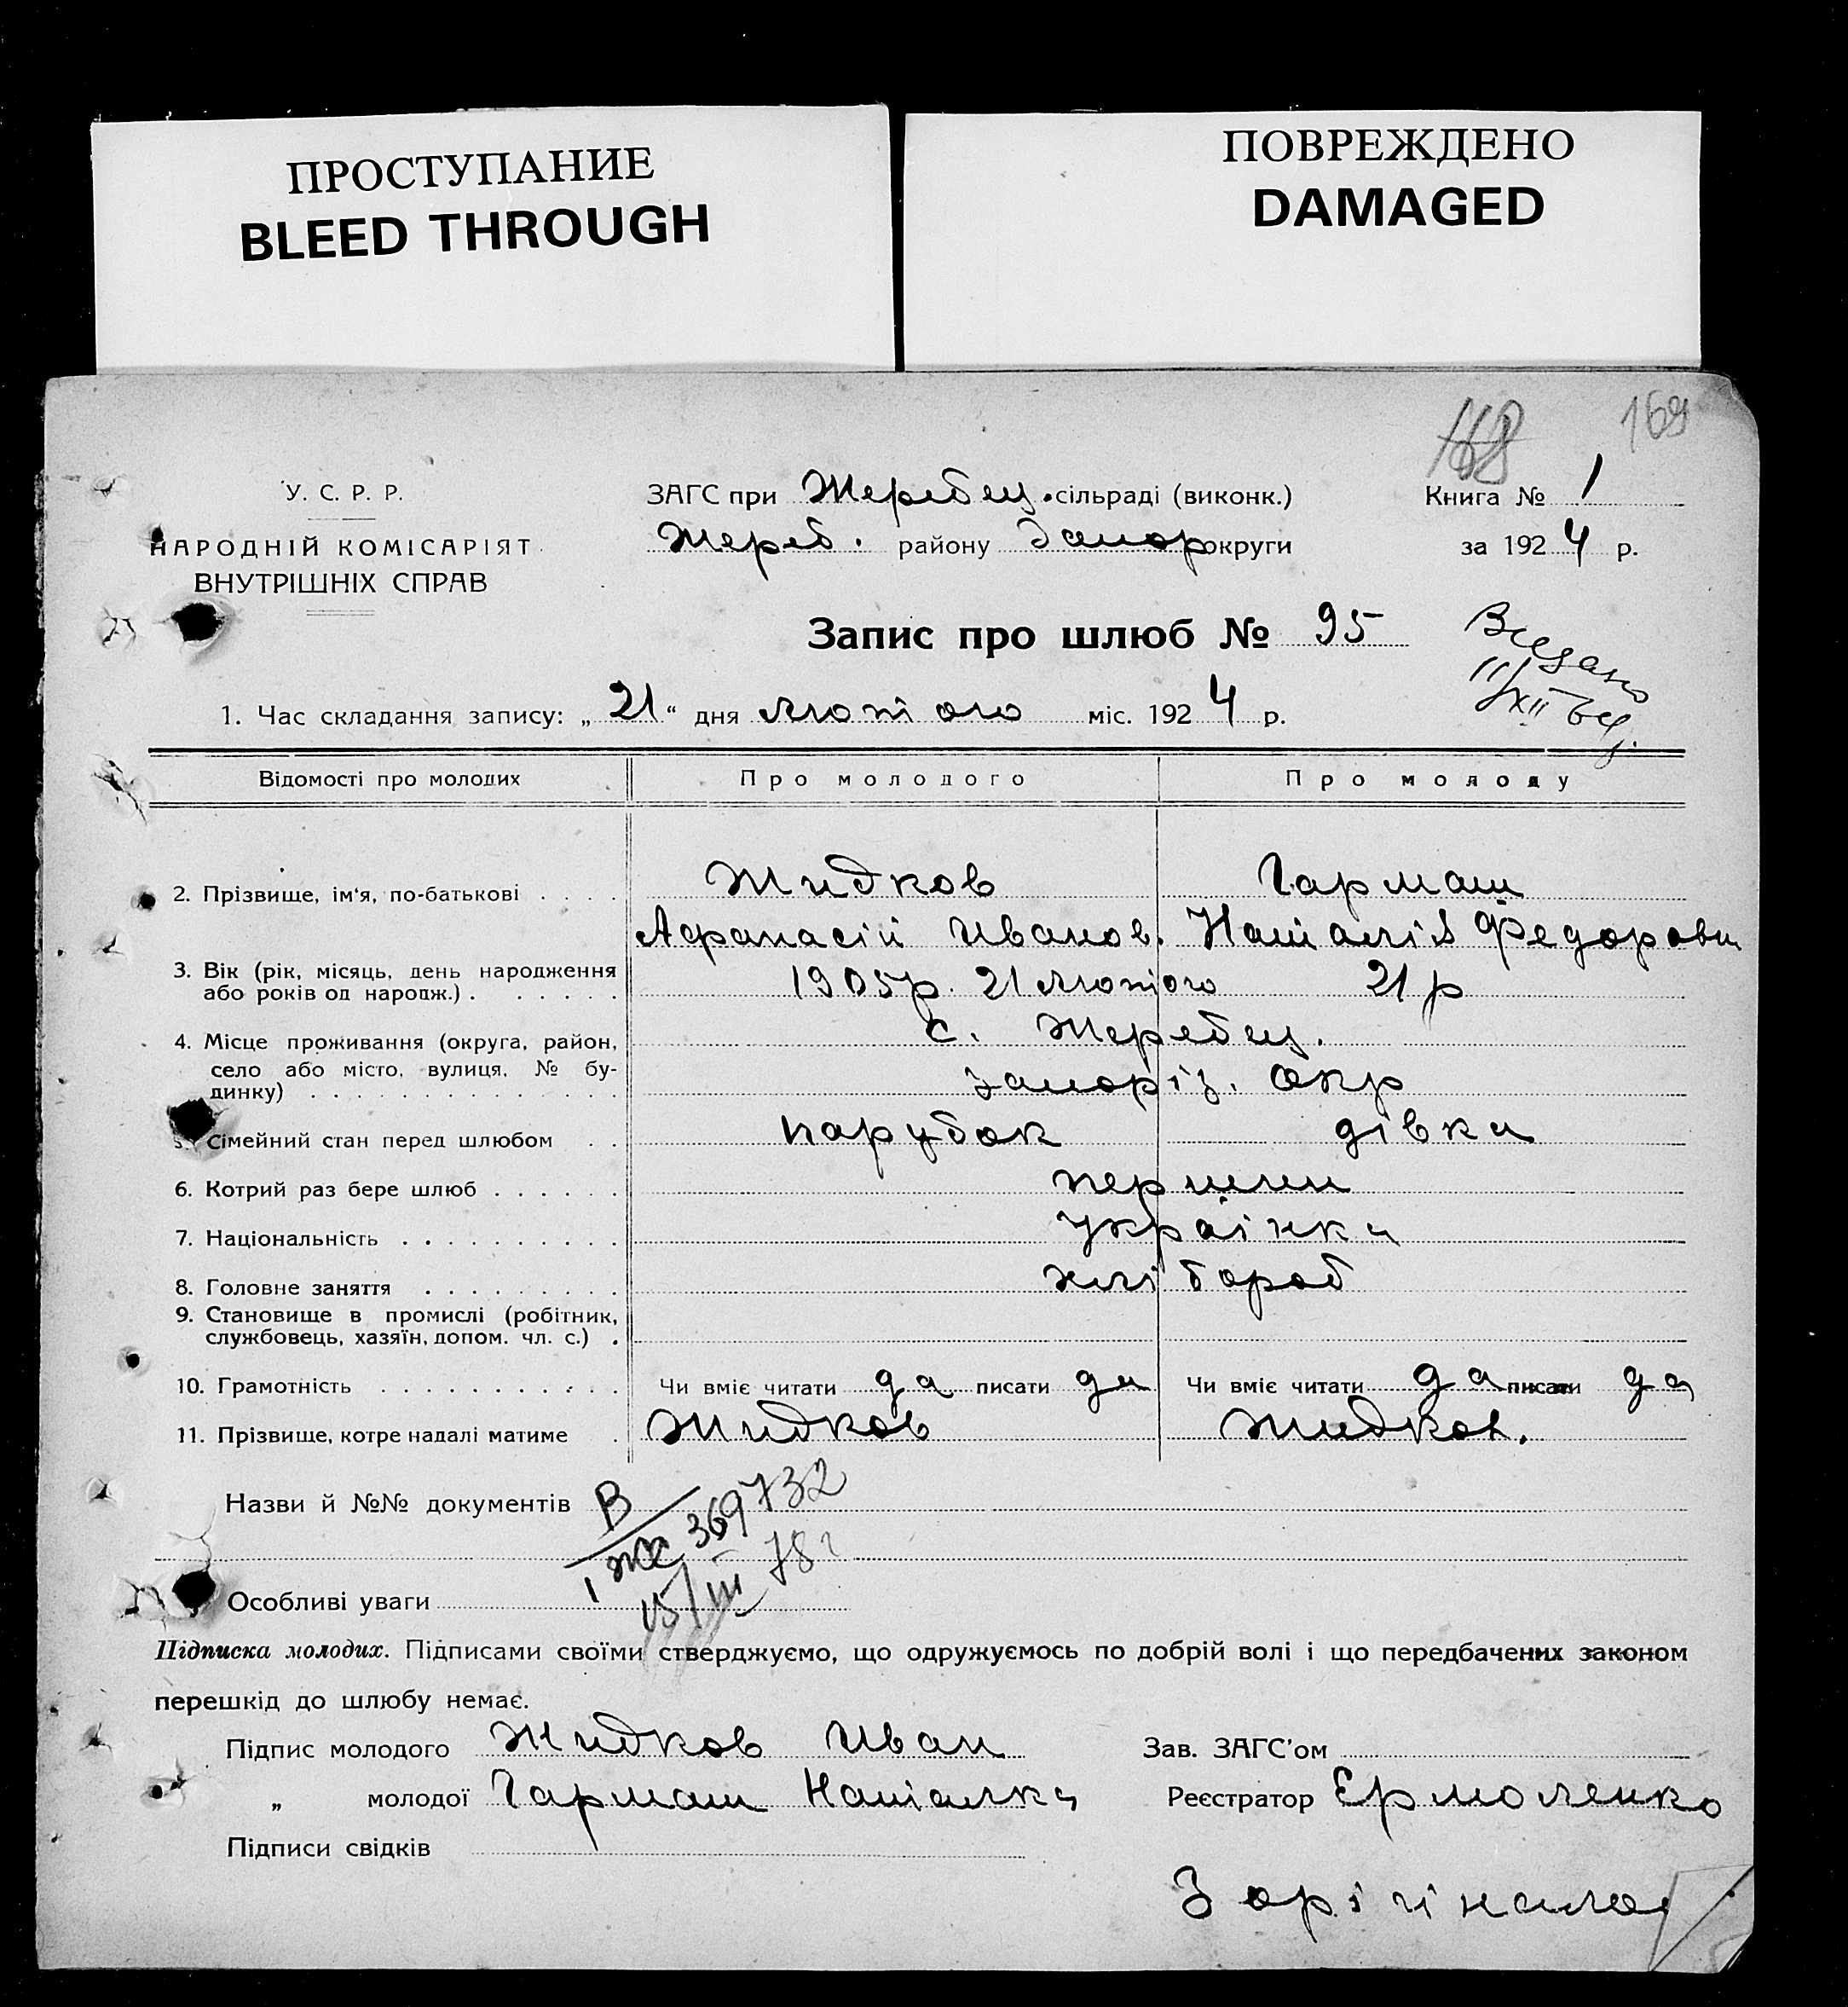 ПРОСТУПАНИЕ
BLEED THROUGH
ПОВРЕЖДЕНО
DAMAGED
168 169
У. С. Р. Р.
НАРОДНІЙ КОМІСАРІЯТ
ВНУТРІШНІХ СПРАВ
ЗАГС при Жеребец. сільраді (виконк.)
Жереб. району Запор округи
Книга № 1
за 1924 р.
Запис про шлюб № 95
1. Час складання запису: „21“ дня лютого міс. 1924 р.
11/XII
Відомості про молодих Про молодого Про молоду
2. Прізвище, ім'я, по-батькові . . . . Жидков Гармаш
Афанасій Иванов. Наталія Федоровн
3. Вік (рік, місяць, день народження або років од народж.) . . . . . . 1905р. 21 лютого 21 р
4. Місце проживання (округа, район, с. Жеребец.
село або місто, вулиця, № будинку) . . . . . . . . . . . . . . Запоріз. окр
5. Сімейний стан перед шлюбом . . парубок дівка
6. Котрий раз бере шлюб . . . . . . перший
7. Національність . . . . . . . . . . українка
8. Головне заняття . . . . . . . . . хлібороб
9. Становище в промислі (робітник,
службовець, хазяїн, допом. чл. с.) .
10. Грамотність . . . . . . . . . . . Чи вміє читати да писати да Чи вміє читати да писати да
11. Прізвище, котре надалі матиме . Жидков Жидков.
Назви й №№ документів В
І ЖС 369732
15/III 78г
Особливі уваги
Підписка молодих. Підписами своїми стверджуємо, що одружуємось по добрій волі і що передбачених законом
перешкід до шлюбу немає.
Підпис молодого Жидков Иван Зав. ЗАГС'ом
„ молодої Гармаш Наталка Реєстратор Ермоленко
Підписи свідків
З оріґінала